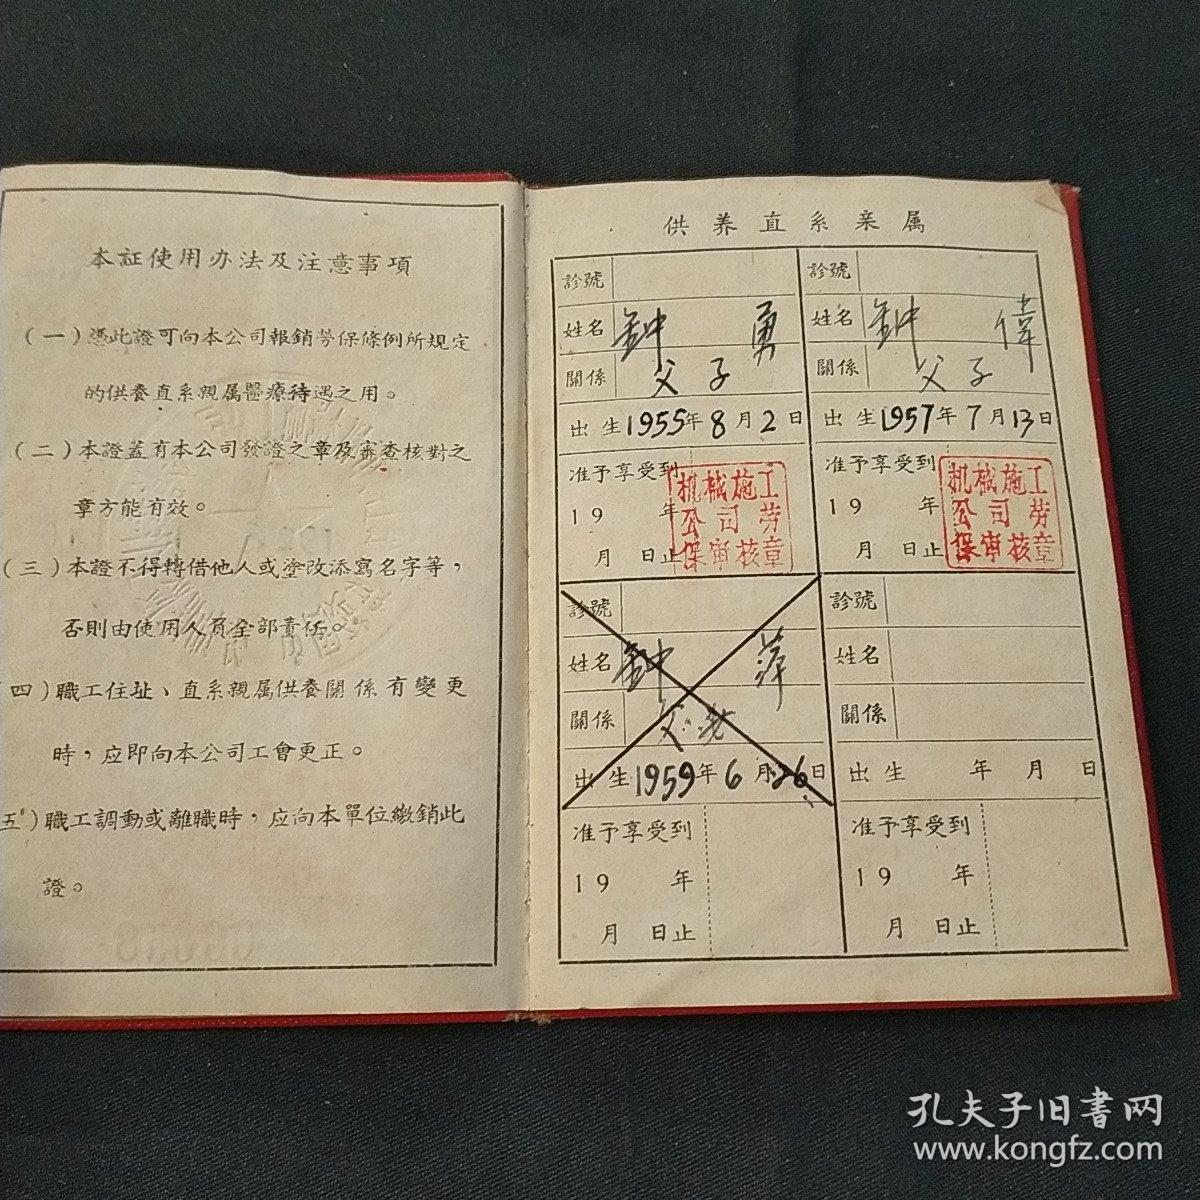 本証使用办法及注意事項
(一)憑此證可向本公司報銷勞保條例所規定
的供養直系親属醫療待遇之用。
(二)本證蓋有本公司發證之章及審查核對之
章方能有效。
(三)本證不得轉借他人或塗改添寫名字等，
否則由使用人員全部責任。
四)職工住址、直系親属供養關係有變更
時，应即向本公司工會更正。
五)職工調動或離職時，应向本單位繳銷此
證。
供养直系亲属
診號
姓名 鈡勇
關係 父子
出生1955年8月2日
准予享受到
19 年
月 日止
机械施工
公司劳
保审核章
診號
姓名 鈡偉
關係 父子
出生1957年7月13日
准予享受到
19 年
月 日止
机械施工
公司劳
保审核章
診號
姓名 鈡萍
關係 父
出生1959年6月26日
准予享受到
19 年
月 日止
診號
姓名
關係
出生 年 月 日
准予享受到
19 年
月 日止
孔夫子旧書网
www.kongfz.com